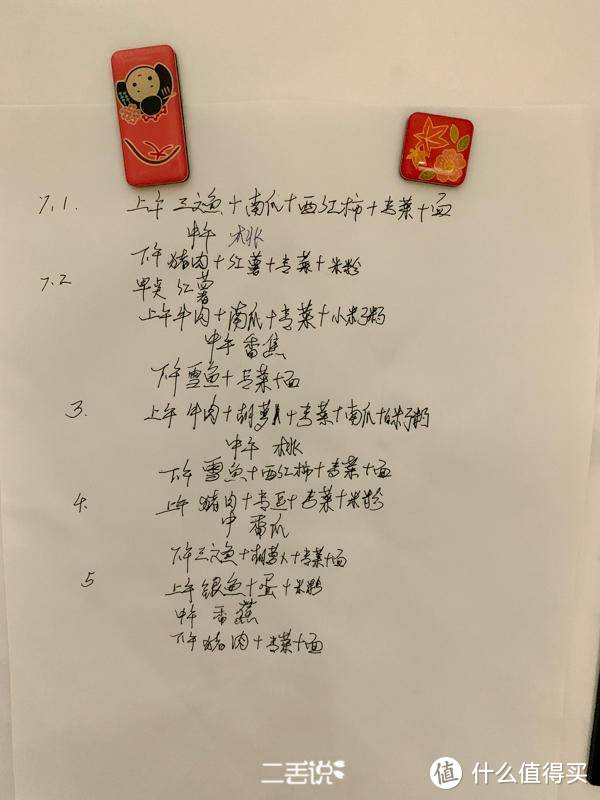 7.1. 上午 三文鱼+南瓜+西红柿+青菜+面
中午 桃
下午 猪肉+红薯+青菜+米粉
7.2 早点 红薯
上午 牛肉+南瓜+青菜+小米粥
中午 香蕉
下午 雪鱼+青菜+面
3. 上午 牛肉+胡萝卜+青菜+南瓜+粥
中午 桃
下午 雪鱼+西红柿+青菜+面
4. 上午 猪肉+青豆+青菜+米粉
中 香瓜
下午 三文鱼+胡萝卜+青菜+面
5 上午 银鱼+蛋+米粉
中午 香蕉
下午 猪肉+青菜+面
二丢说
值 什么值得买